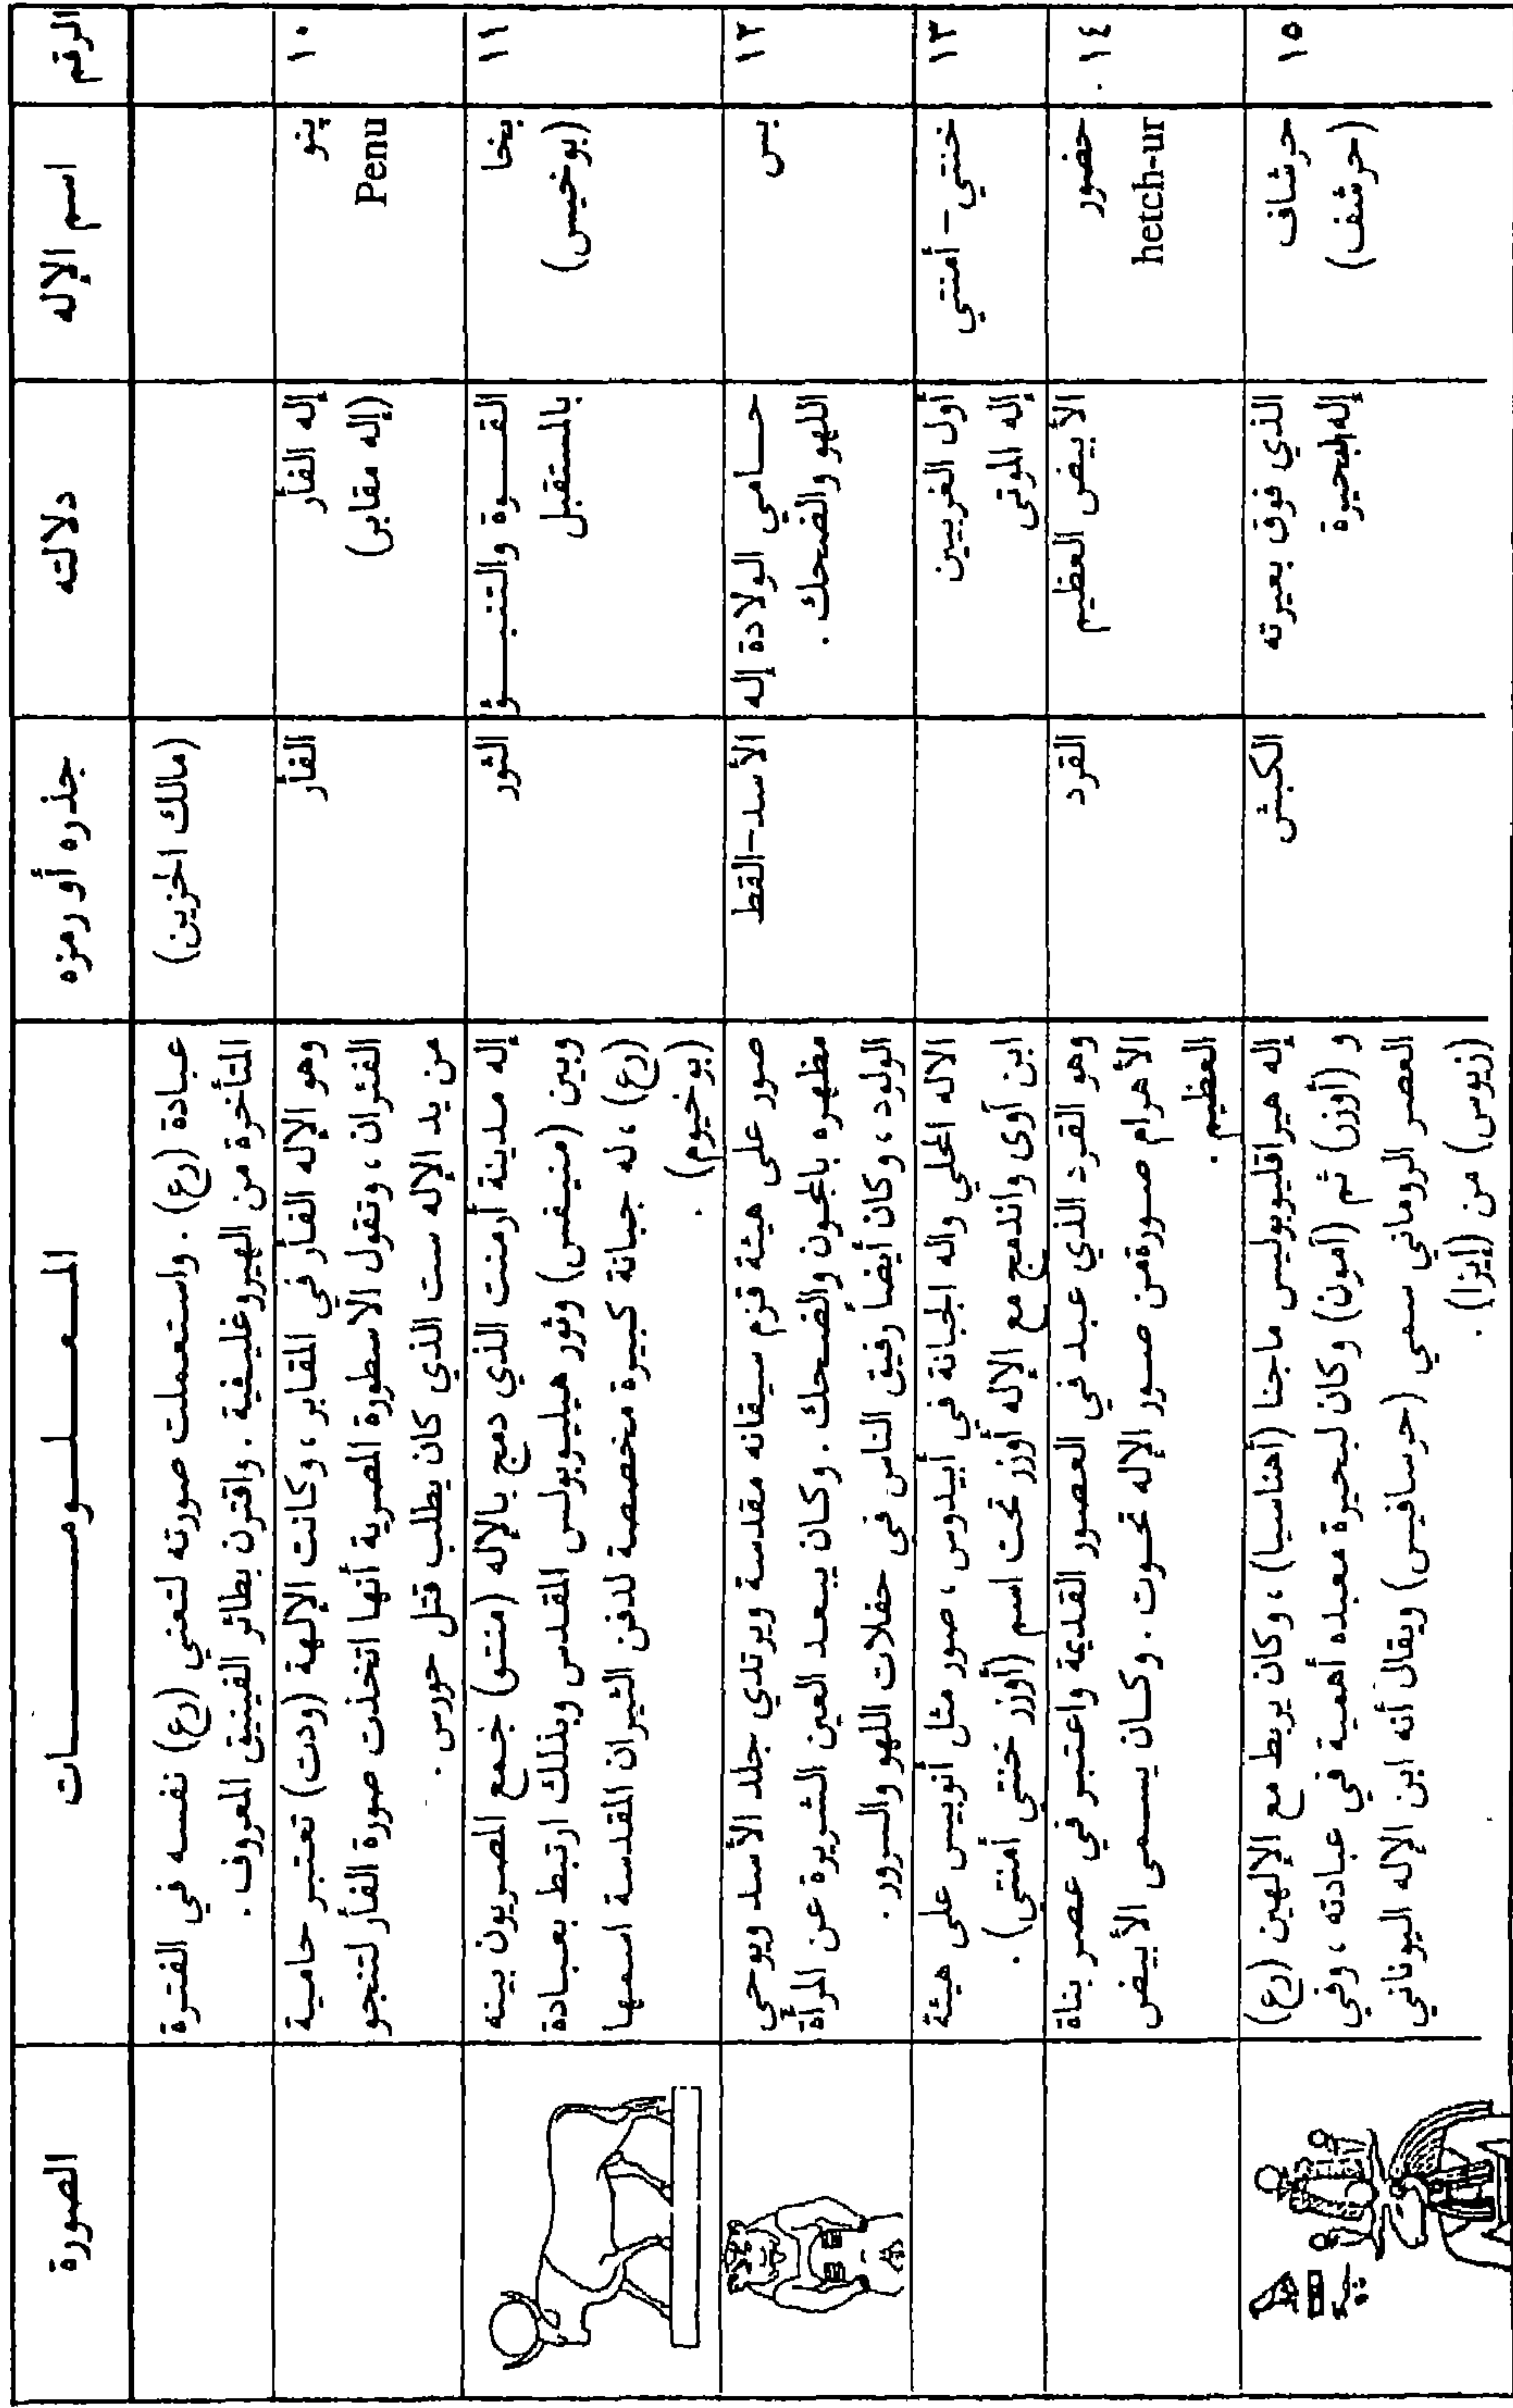 الرقم
اسم الإله
دلالته
جذره أو رمزه
المعلومات
الصورة
(مالك الحزين)
عبادة (رع) . واستعملت صورته لتعني (رع) نفسه في الفترة
المتأخرة من الهيروغليفية . واقترن بطائر الفينيق المعروف .
١٠
پنو
Penu
إله الفأر
(إله مقابر)
الفأر
وهو الإله الفأر في المقابر ، وكانت الإلهة (ودت) تعتبر حامية
الفئران ، وتقول الأسطورة المصرية أنها اتخذت صورة الفأر لتنجو
من يد الإله ست الذي كان يطلب قتل حورس .
١١
بخا
(بوخيس)
القوة والتنبؤ
بالمستقبل
الثور
إله مدينة أرمنت الذي دمج بالإله (منتو) جمع المصريون بينه
وبين (منيفس) وثور هيليوبولس المقدس وبذلك ارتبط بعبادة
(رع) ، له جبانة كبيرة مخصصة لدفن الثيران المقدسة اسمها
(بوخيوم) .
١٢
بس
حامي الولادة إله
اللهو والضحك .
الأسد-القط
صور على هيئة قزم سيقانه مقدسة ويرتدي جلد الأسد ويوحي
مظهره بالمجون والضحك . وكان يبعد العين الشريرة عن المرأة
الولود ، وكان أيضاً رفيق الناس في حفلات اللهو والسرور .
١٣
خنتي-أمنتي
أول الغربيين
إله الموتى
الاله المحلي واله الجبانة في أبيدوس ، صور مثل أنوبيس على هيئة
ابن آوى واندمج مع الإله أوزر تحت اسم (أوزر خنتي أمنتي) .
١٤ .
حضور
hetch-ur
الأبيض العظيم
القرد
وهو القرد الذي عبد في العصور القديمة واعتبر في عصر بناة
الأهرام صورة من صور الإله تحوت . وكان يسمى الأبيض
العظيم .
١٥
حرشاف
(حرشف)
الذي فوق بعيرته
إله البحيرة
الكبش
إله هيراقليوبوليس ماجنا (أهناسيا) ، وكان يربط مع الإلهين (رع)
و (أوزر) ثم (آمون) وكان لبحيرة معبده أهمية في عبادته ، وفي
العصر الروماني سمي (حرسافيس) ويقال أنه ابن الإله اليوناني
(زيوس) من (إيزا) .